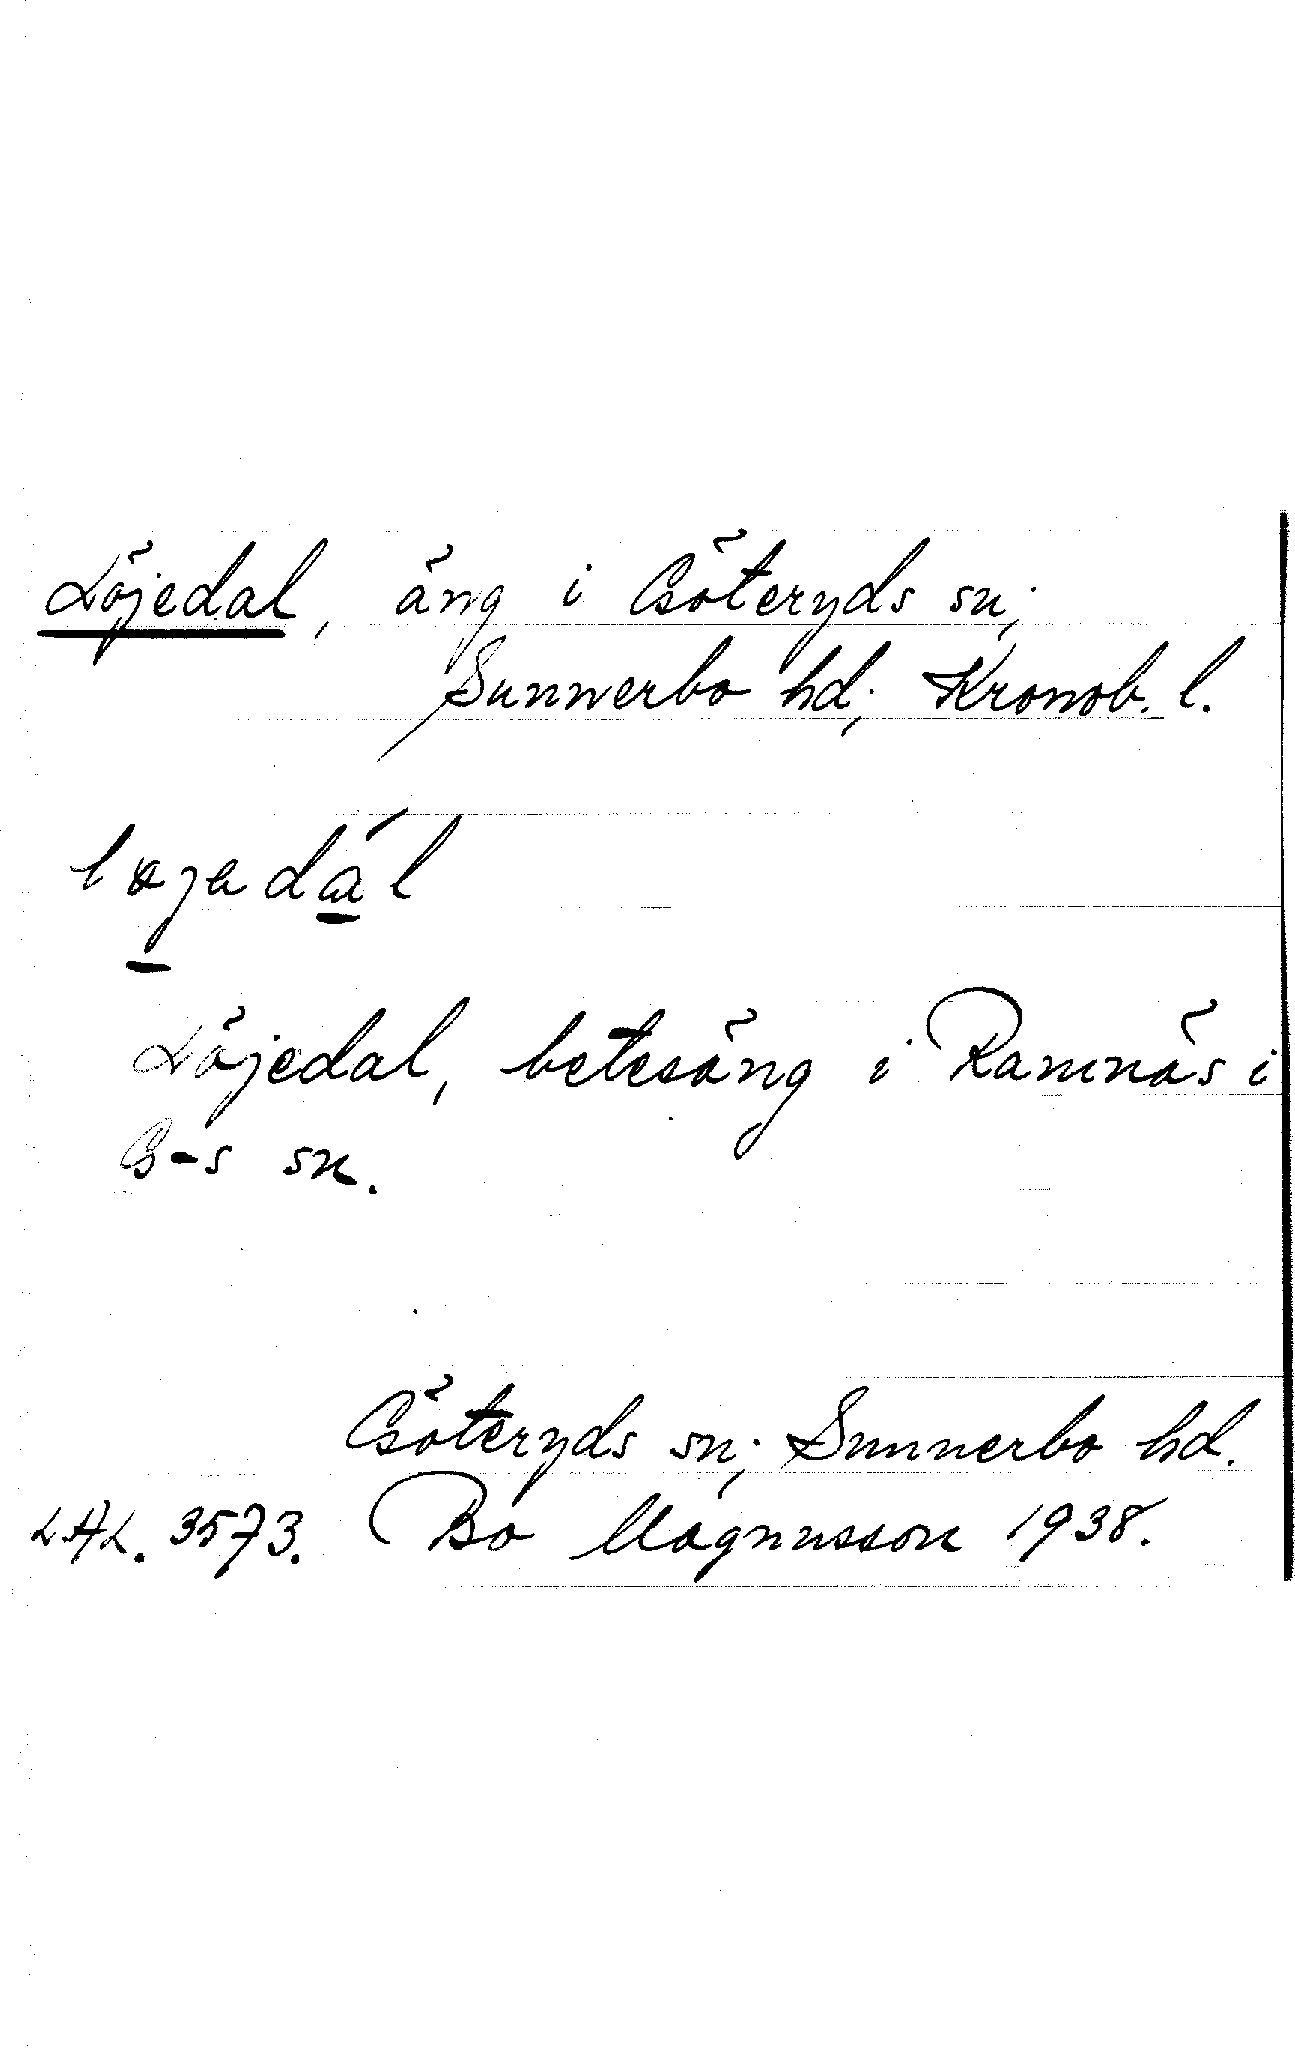 Löjedal, äng i Göteryds sn;
Sunnerbo hd; Kronob. l.
Löjedal, betesäng i Ramnäs i
G-s sn.
Göteryds sn; Sunnerbo hd.
LAL. 3573. Bo Magnusson 1938.